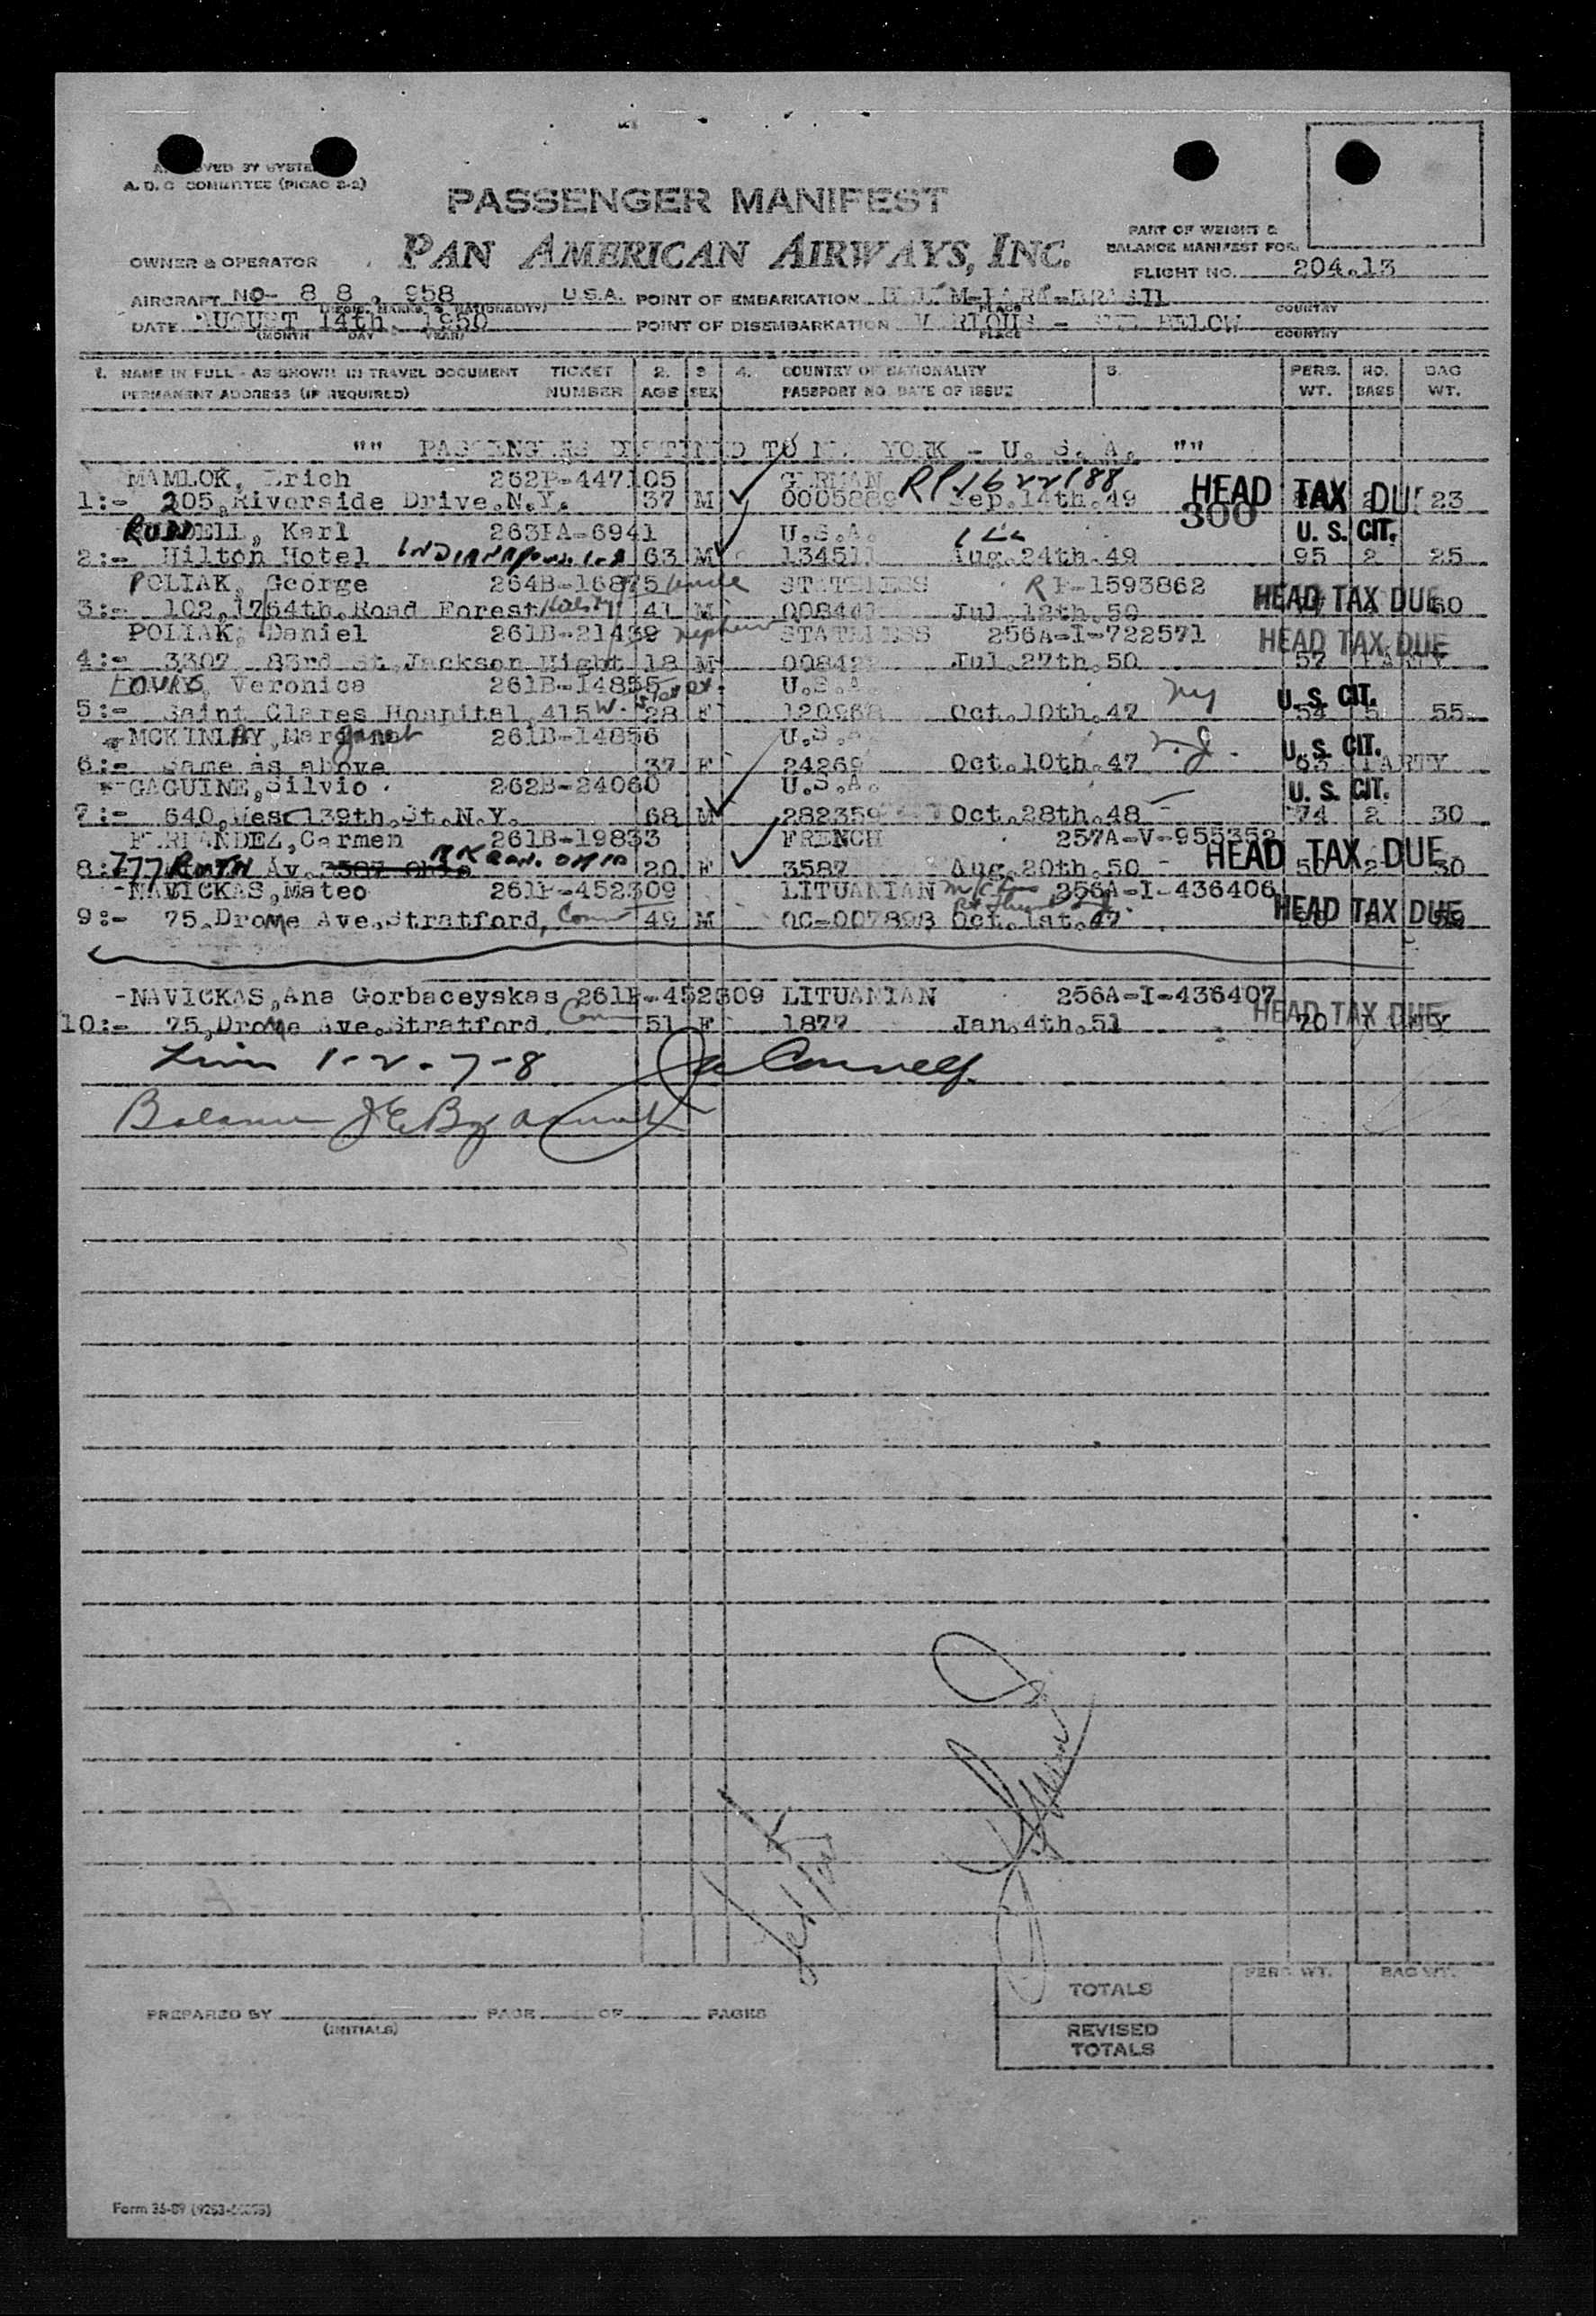 A. D. C COMMITTEE (PICAO 2-2)
PASSENGER MANIFEST
PAN AMERICAN AIRWAYS, INC.
PART OF WEIGHT &
BALANCE MANIFEST FOR:
OWNER & OPERATOR
FLIGHT NO. 204.13
AIRCRAFT NO- 8 8 . 958 U.S.A. POINT OF EMBARKATION
PLACE COUNTRY
DATE AUGUST 14th. 1950 POINT OF DISEMBARKATION VARIOUS - SEE BELOW
(MONTH DAY YEAR) PLACE COUNTRY
1. NAME IN FULL - AS SHOWN IN TRAVEL DOCUMENT TICKET 2. 3 4. COUNTRY OF NATIONALITY 5. PERS. NO. BAG
PERMANENT ADDRESS (IF REQUIRED) NUMBER AGE SEX PASSPORT NO DATE OF ISSUE WT. BAGS WT.
"" PASSENGERS DESTINED TO N. YORK - U. S. A. ""
MAMLOK, Erich 262B-447105 GERMAN RP1622188
1:- 205,Riverside Drive.N.Y. 37 M 0005889 Sep.14th.49 HEAD TAX DUE 23
300
RUDDELL, Karl 263IA-6941 U.S.A. U. S. CIT.
2:- Hilton Hotel 63 M 134511 Aug.24th.49 95 2 25
POLIAK, George 264B-16875 uncle STATELESS RP-1593862
3:- 102,1764th.Road Forest 41 M 008441 Jul.12th.50 HEAD TAX DUE
POLIAK, Daniel 261B-21439 nephew STATELESS 256A-I-722571
4:- 3307 83rd St.Jackson Hight 18 M Jul.27th.50 HEAD TAX DUE
Veronica 261B-14855 U.S.A. NY U. S. CIT.
5:- Saint Clares Hospital,415 W. 28 F 120968 Oct.10th.47 54 5 55
MCKINLAY,Margaret 261B-14856 U.S.A. N.J. U. S. CIT.
6:- Same as above 37 F 24269 Oct.10th.47 PARTY
GAGUINE,Silvio 262B-24060 U.S.A. U. S. CIT.
7:- 640,West 139th.St.N.Y. 68 M 282359 Oct.28th.48 74 2 30
FERNANDEZ,Carmen 261B-19833 FRENCH 257A-V-955352
8:- 777 Av. 20 F 3587 Aug.20th.50 HEAD TAX DUE 30
-NAVICKAS,Mateo 261B-452309 LITUANIAN 256A-I-436406
9:- 75.Drome Ave.Stratford, Conn 49 M OC-007898 Oct.1st.47 HEAD TAX DUE
-NAVICKAS,Ana Gorbaceyskas 261B-452309 LITUANIAN 256A-I-436407
10:- 75,Drome Ave.Stratford Conn 51 F 1877 Jan.4th.51 HEAD TAX DUE
1-2-7-8
TOTALS PERS WT. BAG WT.
REVISED
TOTALS
PREPARED BY PAGE OF PAGES
(INITIALS)